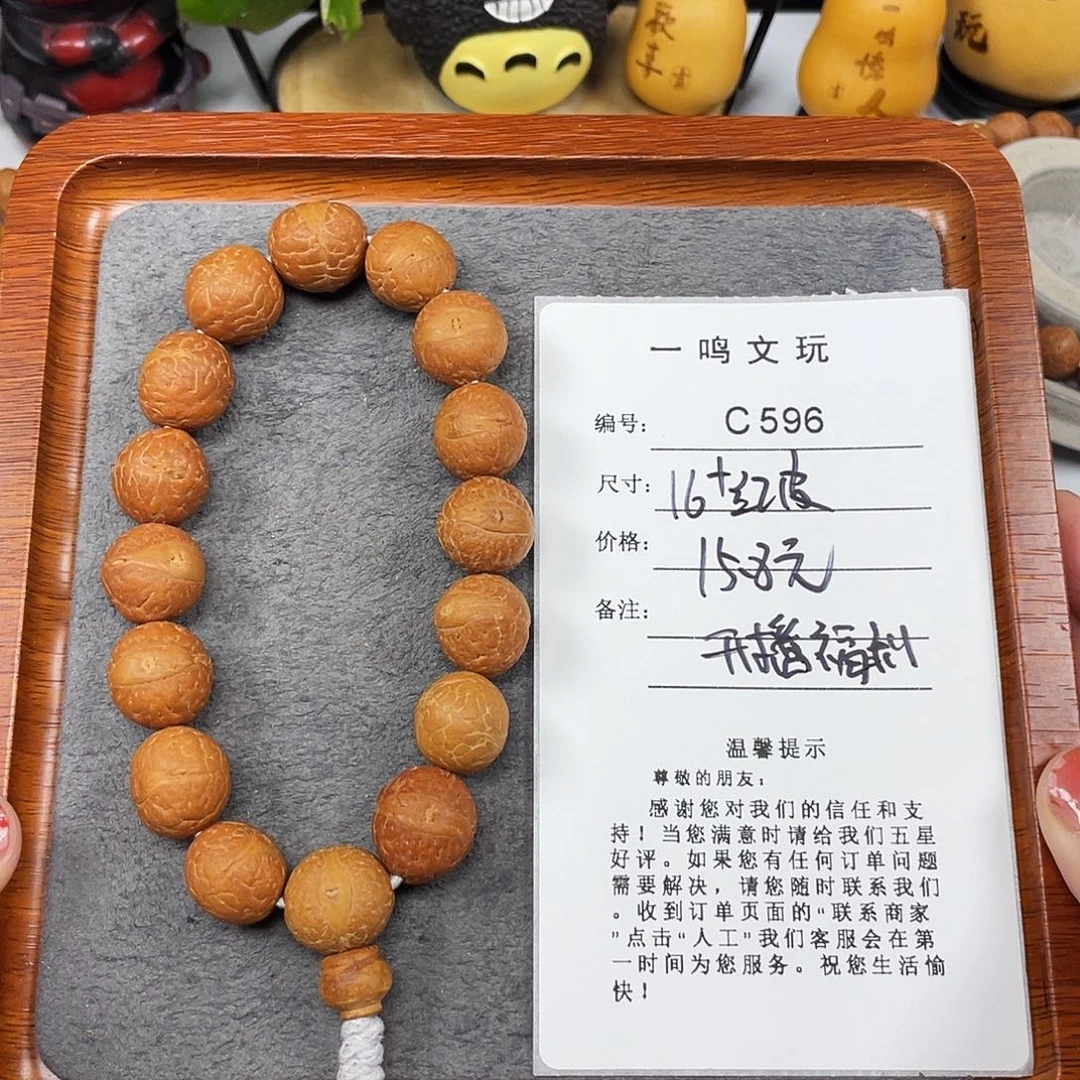 玩
一鸣文玩
编号: C596
尺寸: 16+红皮
价格: 158元
备注:
开播福利
温馨提示
尊敬的朋友:
感谢您对我们的信任和支
持!当您满意时请给我们五星
好评。如果您有任何订单问题
需要解决,请您随时联系我们
。收到订单页面的“联系商家
”点击“人工”我们客服会在第
一时间为您服务。祝您生活愉
快!